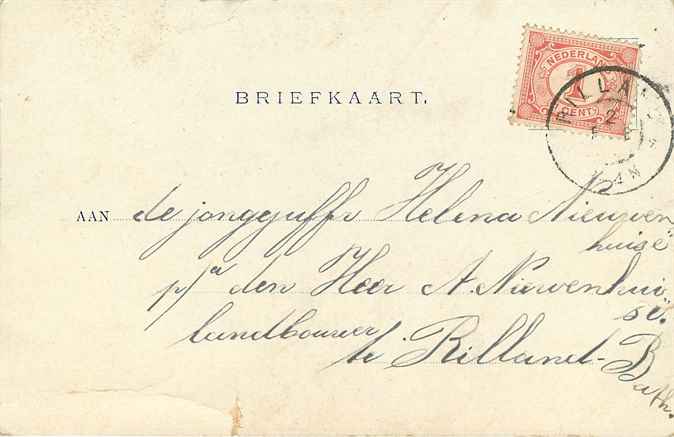 NEDERLAND
1
CENT
RILLAND
2
BRIEFKAART.
AAN de jongejuffr Helena Nieuwen
huise
p/a den Heer A. Nieuwenhui
se.
landbouwer
te Rilland-B
ath.